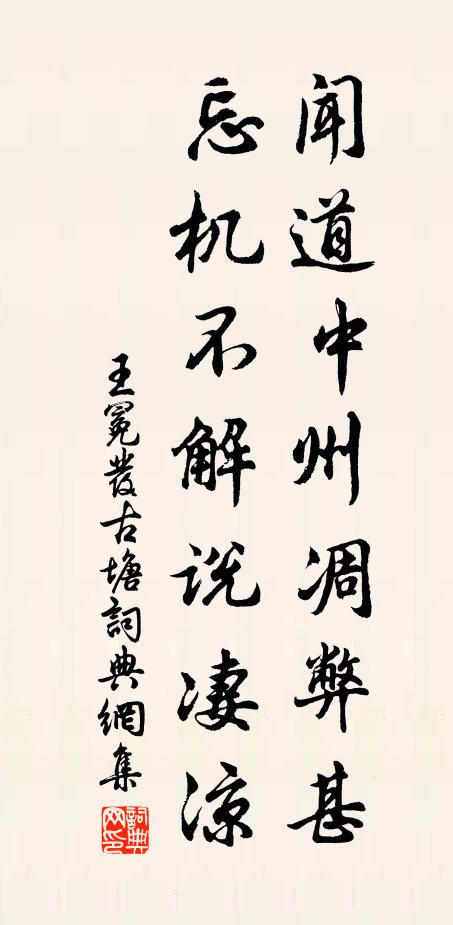 闻道中州凋弊甚
忘机不解说凄凉
王冕發古塘詞典網集
詞典网印